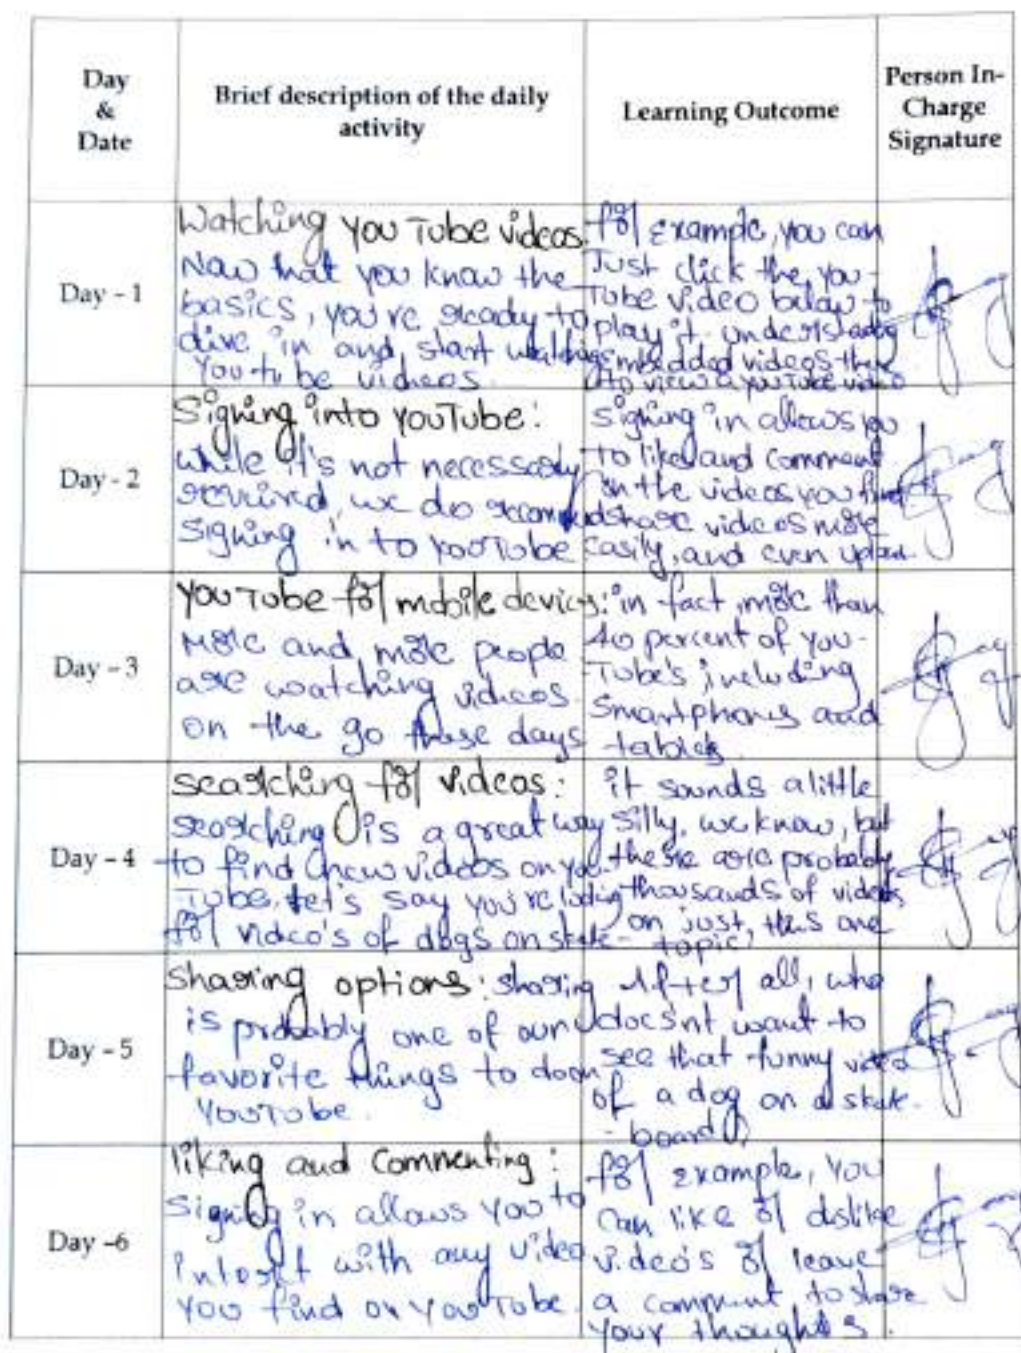 Day
&
Date
Brief description of the daily
activity
Learning Outcome
Person In-
Charge
Signature
Day - 1
Watching YouTube videos
Now that you know the
basics, you're ready to
dive in and start watching
YouTube videos.
for example, you can
Just click the you-
Tube video below to
play it. understanding
embedded videos
to view a YouTube video
Day - 2
Signing into YouTube:
while it's not necessarily
required, we do recommend
signing in to YouTube
signing in allows you
to like and comment
in the videos you find
share videos more
easily, and even upload
Day - 3
YouTube for mobile devices:
More and more people
are watching videos
on the go these days
in fact, more than
40 percent of you-
Tube's, including
Smartphones and
tablets.
Day - 4
searching for videos:
searching is a great way
to find new videos on you
Tube. Let's say you're looking
for video's of dogs on skate-
it sounds a little
silly, we know, but
there are probably
thousands of videos
on just, this one
topic
Day - 5
Sharing options: sharing
is probably one of our
favorite things to do on
YouTube.
After all, who
doesnt want to
see that funny video
of a dog on a skate-
-board
Day -6
liking and Commenting:
Signing in allows you to
with any video
you find on YouTube.
for example, you
can like or dislike
video's or leave
a comment to share
your thoughts.